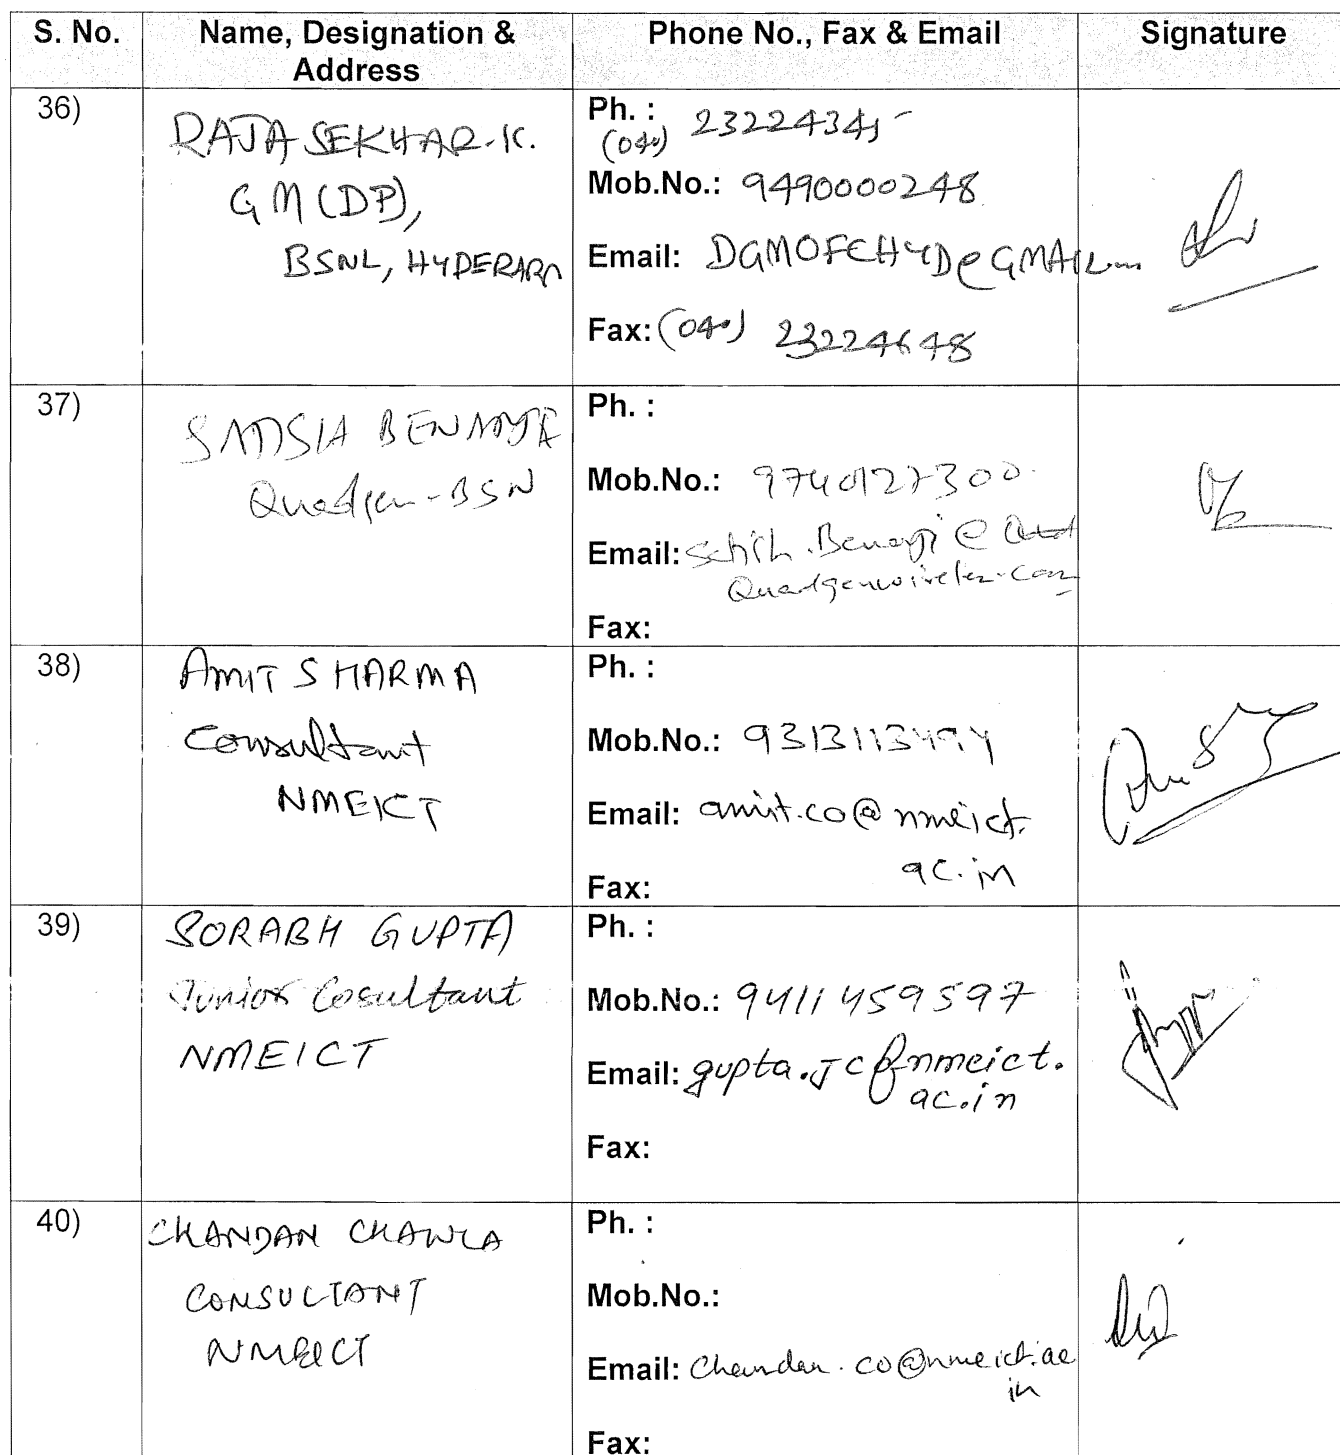 S. No. Name, Designation & Address Phone No., Fax & Email Signature
36)
RAJA SEKHAR-K.
GM (DP),
BSNL, HYDERABAD
Ph. : (040) 23224345
Mob.No.: 9490000248
Email: DGMOFCHYD@GMAIL
Fax: (040) 23224648
37)
BENARJE
Quadgen-BSN
Ph. :
Mob.No.: 9740127300
Email: Satish.Benarji@
Quadgenwireless.com
Fax:
38)
AMIT SHARMA
Consultant
NMEICT
Ph. :
Mob.No.: 9313113494
Email: amit.co@nmeict.
ac.in
Fax:
39)
SORABH GUPTA
Junior Cosultant
NMEICT
Ph. :
Mob.No.: 9411459597
Email: gupta.jc@nmeict.
ac.in
Fax:
40)
CHANDAN CHAWLA
CONSULTANT
NMEICT
Ph. :
Mob.No.:
Email: Chandan.co@nmeict.ac
in
Fax: